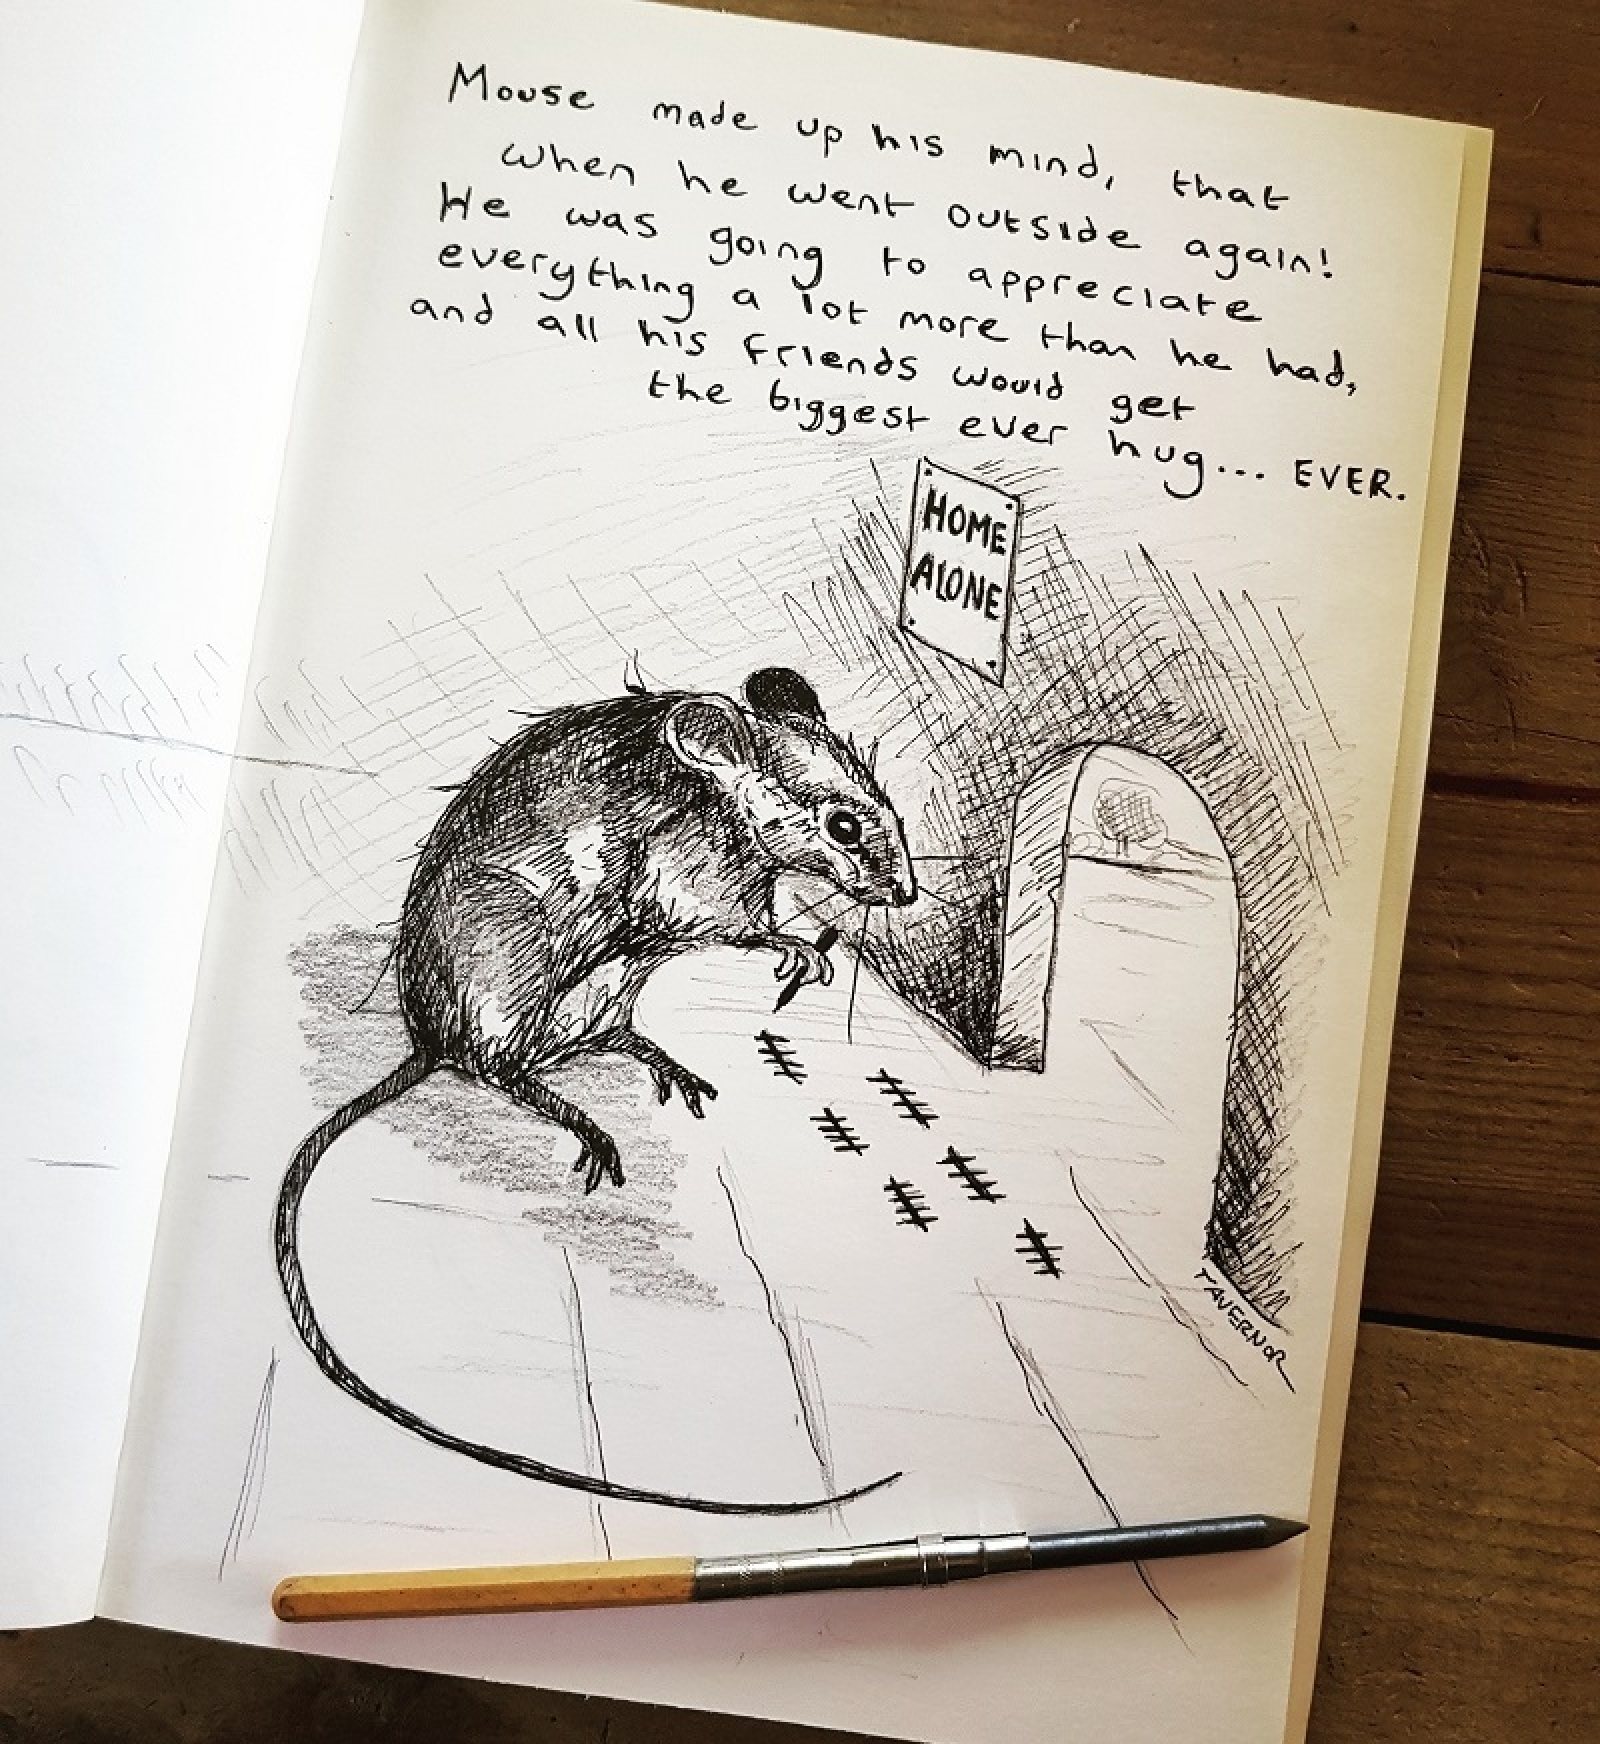 Mouse made up his mind, that
when he went outside again!
He was going to appreciate
everything a lot more than he had,
and all his friends would get
the biggest ever hug... EVER.
HOME
ALONE
TAVERNOR